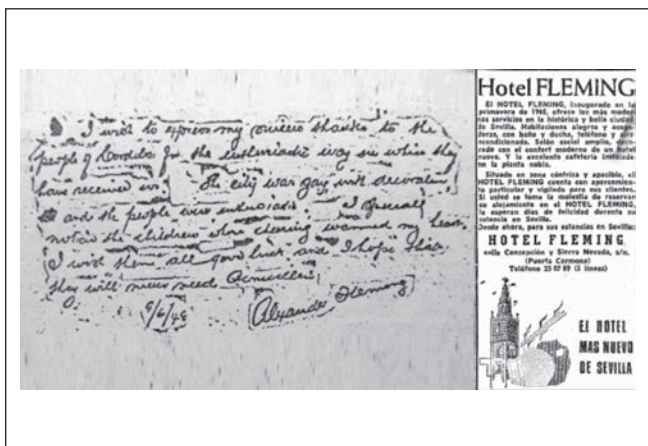 I wish to express my sincere thanks to the
people of Cordoba for the enthusiastic way in which they
have received us. The city was gay with decorations
and the people were enthusiastic. I especially
notice the children whose cheering warmed my heart.
I wish them all good luck and I hope that
they will never need Penicillin.
9/6/48 Alexander Fleming
Hotel FLEMING
El HOTEL FLEMING, inaugurado en la
primavera de 1965, ofrece los más moder
nos servicios en la histórica y bella ciudad
de Sevilla. Habitaciones alegres y acoge
doras, con baño y ducha, teléfono y aire
acondicionado. Salón social amplio, deco
rado con el confort moderno de un hotel
nuevo. Y la excelente cafetería instalada
en la planta noble.
Situado en zona céntrica y apacible, el
HOTEL FLEMING cuenta con aparcamien
to particular y vigilado para sus clientes.
Si usted se toma la molestia de reservar
su alojamiento en el HOTEL FLEMING,
le esperan días de felicidad durante su
estancia en Sevilla.
Desde ahora, para sus estancias en Sevilla:
HOTEL FLEMING
calle Concepción y Sierra Nevada, s/n.
(Puerta Carmona)
Teléfono 23 07 89 (5 líneas)
EL HOTEL
MAS NUEVO
DE SEVILLA